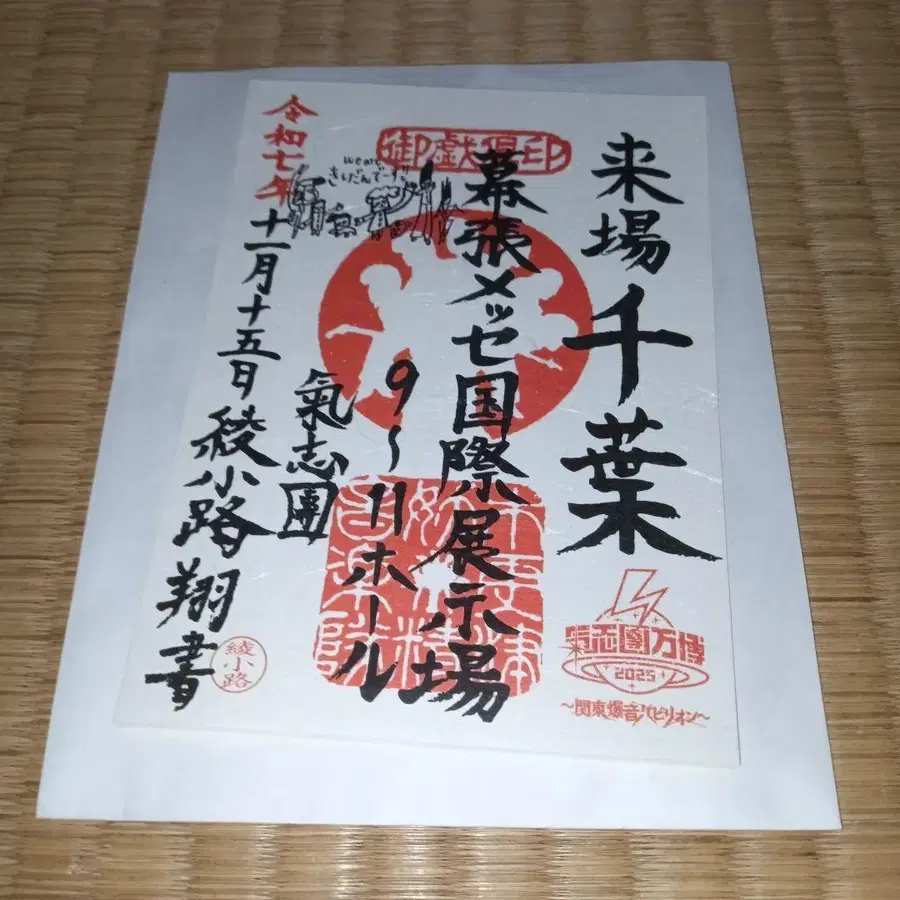 来場 千葉
御戯侶印
幕張メッセ国際展示場
9~11ホール
we are
きしだんでーす!!
氣志團
令和七年十一月十五日 綾小路翔書
綾小路
氣志團万博
2025
~関東爆音パビリオン~